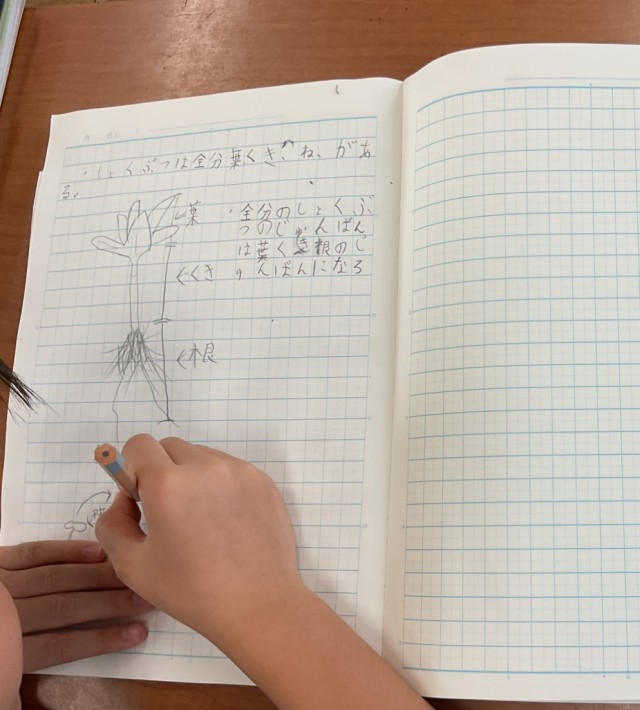 ・しょくぶつは全分葉くき、ね、があ
る。
葉
・全分のしょくぶ
つのじゅんばん
は葉くき根のじ
ゅんばんになる
←くき
←根